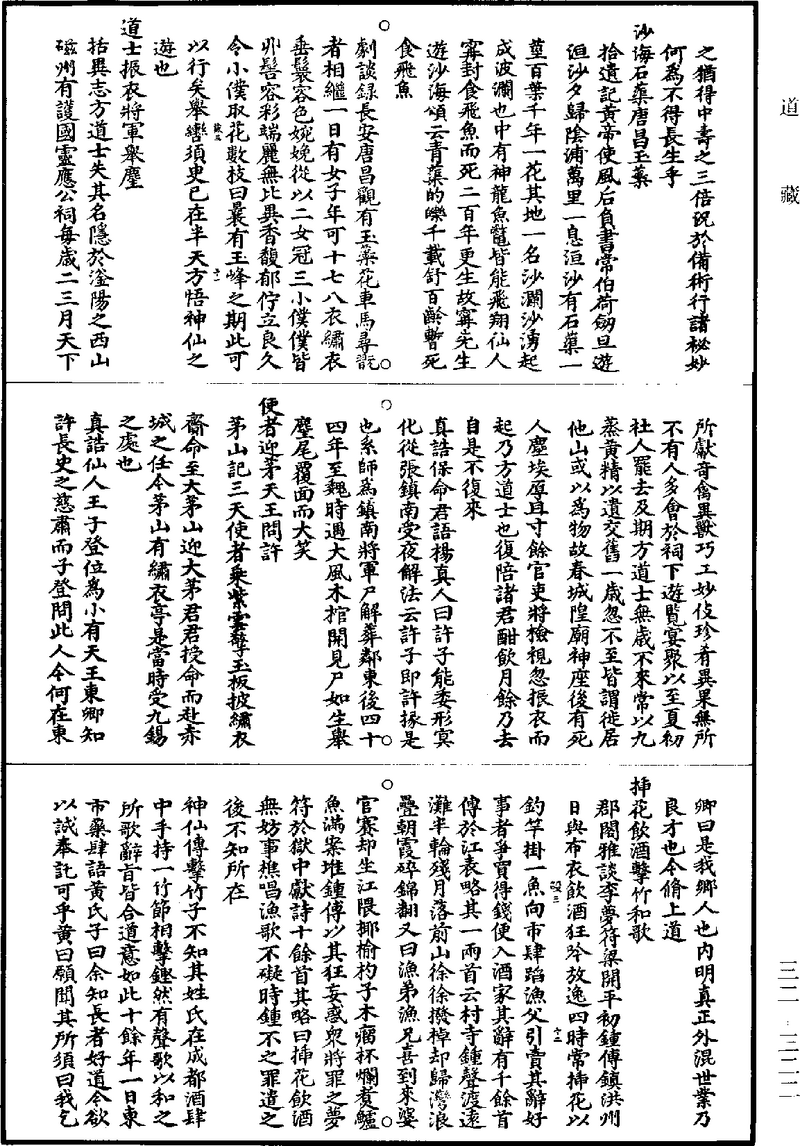 道藏
之猶得中壽之三倍況於備術行諸秘妙
何為不得長生乎
沙海石蕖唐昌玉蘂
拾遺記黃帝使風后負書常伯荷劒旦遊
洹沙夕歸陰浦萬里一息洹沙有石蕖一
莖百葉千年一花其地一名沙瀾沙湧起
成波瀾也中有神龍魚鼈皆能飛翔仙人
甯封食飛魚而死二百年更生故甯先生
遊沙海頌云青蕖灼爍千載舒百齡暫死
食飛魚
劇談録長安唐昌觀有玉蘂花車馬尋翫
者相繼一日有女子年可十七八衣繡衣
垂鬟容色婉娩從以二女冠三小僕僕皆
丱髻容彩端麗無比異香馥郁佇立良久
令小僕取花數枝曰曩有玉峰之期此可
以行矣舉轡須吏已在半天方悟神仙之
遊也
道士振衣將軍舉麈
括異志方道士失其名隱於滏陽之西山
磁州有護國靈應公祠每歲二三月天下
所獻奇禽異獸巧工妙伎珍肴異果無所
不有人多會於祠下遊覧宴聚以至夏初
社人罷去及期方道士無歲不來常以九
蒸黃精以遺交舊一歲忽不至皆謂徙居
他山或以為物故春城隍廟神座後有死
人塵埃厚且寸餘官吏將檢視忽振衣而
起乃方道士也復陪諸君酣飲月餘乃去
自是不復來
真誥保命君語揚真人曰許子能委形冥
化從張鎮南受夜解法云許子即許掾是
也系師為鎮南將軍尸解葬鄴東後四十
四年至魏時遇大風木棺開見尸如生舉
麈尾覆面而大笑
使者迎茅天王問許
茅山記三天使者乘紫雲擎玉板披繡衣
齋命至大茅山迎大茅君君授命而赴赤
城之任今茅山有繡衣亭是當時受九錫
之處也
真誥仙人王子登位為小有天王東卿知
許長史之慈肅而子登問此人今何在東
卿曰是我鄉人也内明真正外混世業乃
良才也今脩上道
揷花飲酒擊竹和歌
郡閣雅談李夢符梁開平初鍾傳鎮洪州
日與布衣飲酒狂吟放逸四時常揷花以
釣竿掛一魚向市肆蹈漁父引賣其辭好
事者爭買得錢便入酒家其辭有千餘首
傳於江表略其一兩首云村寺鍾聲渡遠
灘半輪殘月落前山徐徐撥棹却歸灣浪
疊朝霞碎錦翻又曰漁弟漁兄喜到來婆
官賽却坐江隈揶榆杓子木瘤杯爛煮鱸
魚滿案堆鍾傳以其狂妄惑衆將罪之夢
符於獄中獻詩十餘首其略曰揷花飲酒
無妨事樵唱漁歌不礙時鍾不之罪遣之
後不知所在
神仙傳擊竹子不知其姓氏在成都酒肆
中手持一竹節相擊鏗然有聲歌以和之
所歌辭旨皆合道意如此十餘年一日東
市藥肆語黃氏子曰余知長者好道今欲
以誠奉託可乎黃曰願聞其所須曰我乞
三二 三二二